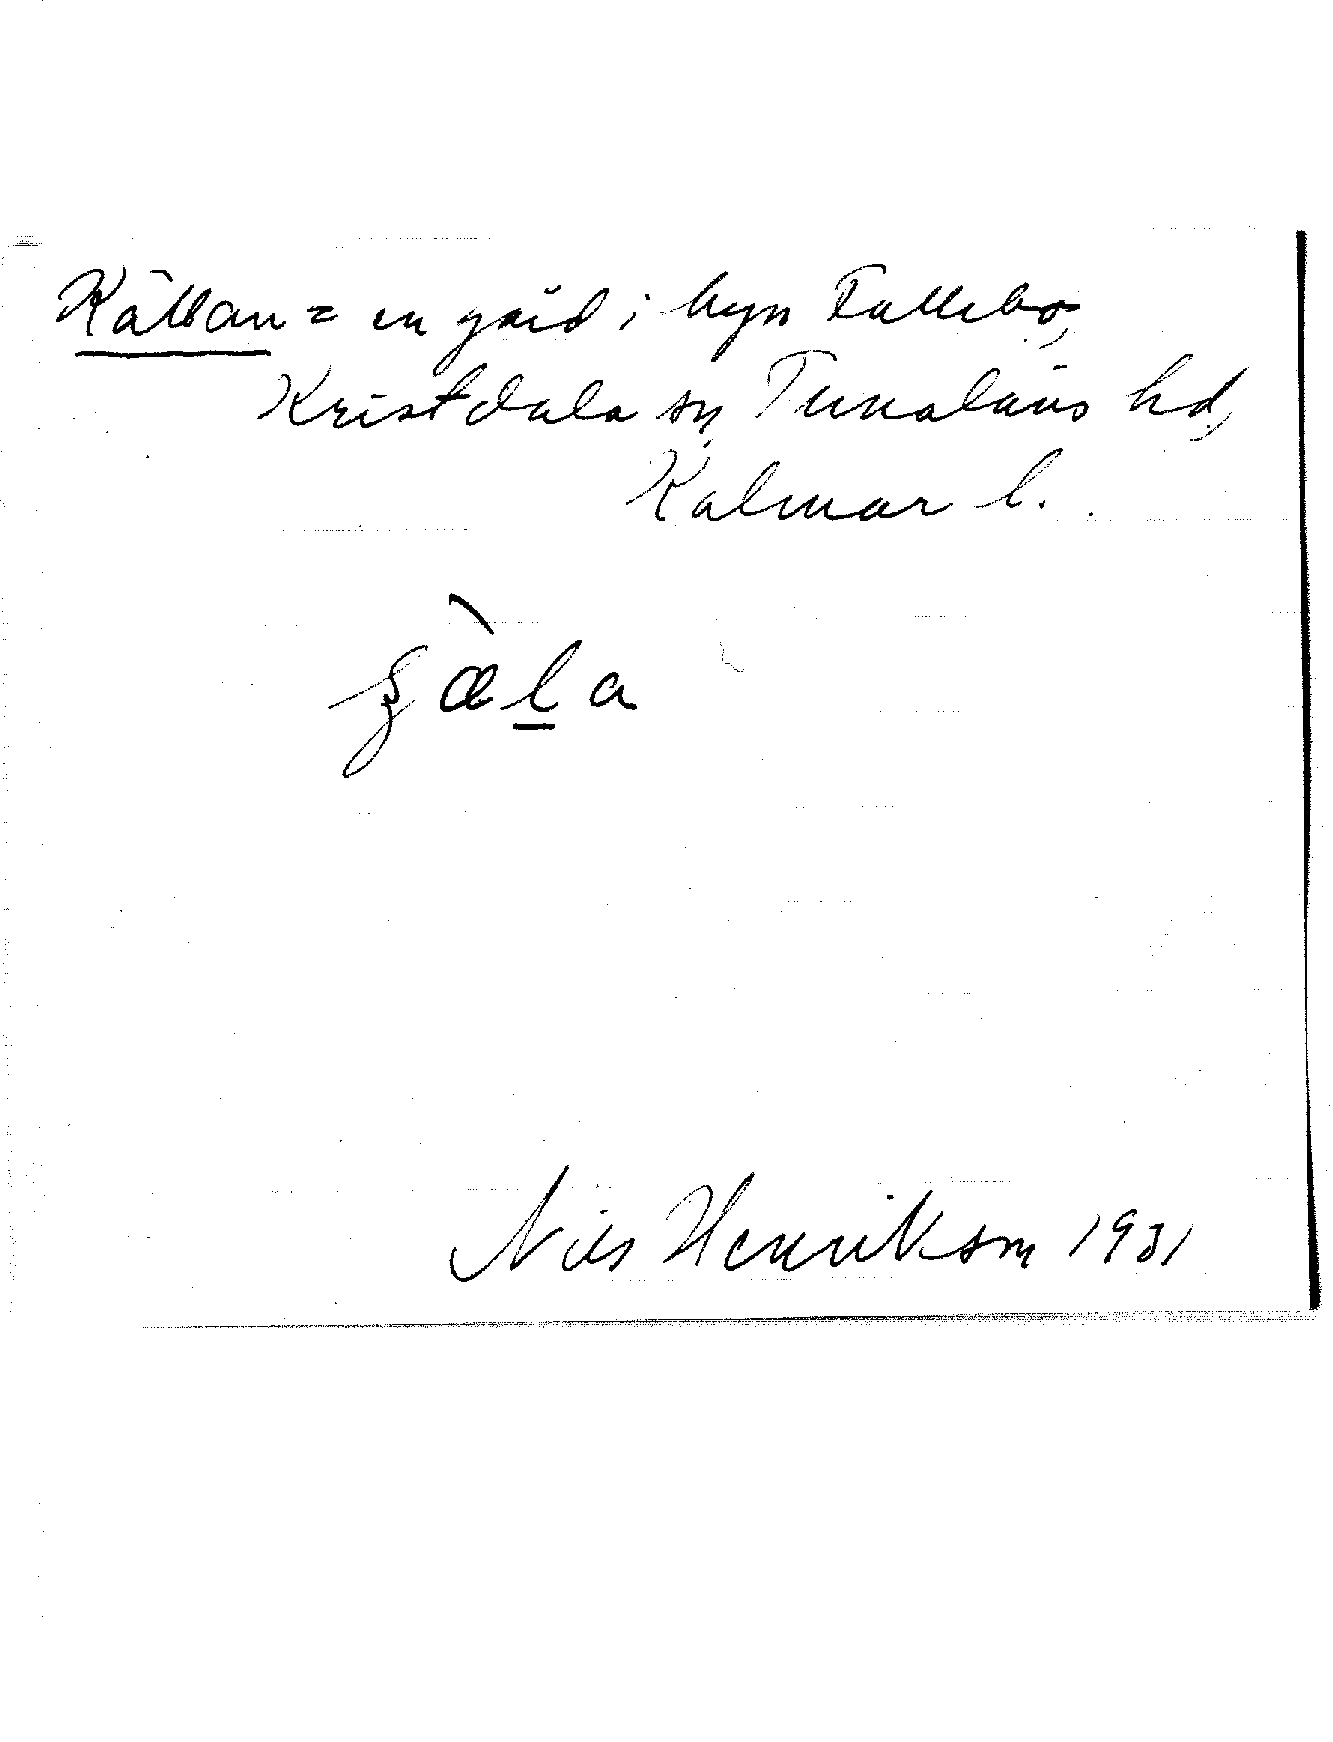 Källan = en gård i byn Fallebo,
Kristdala sn, Tunaläns hd,
Kalmar l.
ʂæ̀l̲a
Nils Henrikson 1931